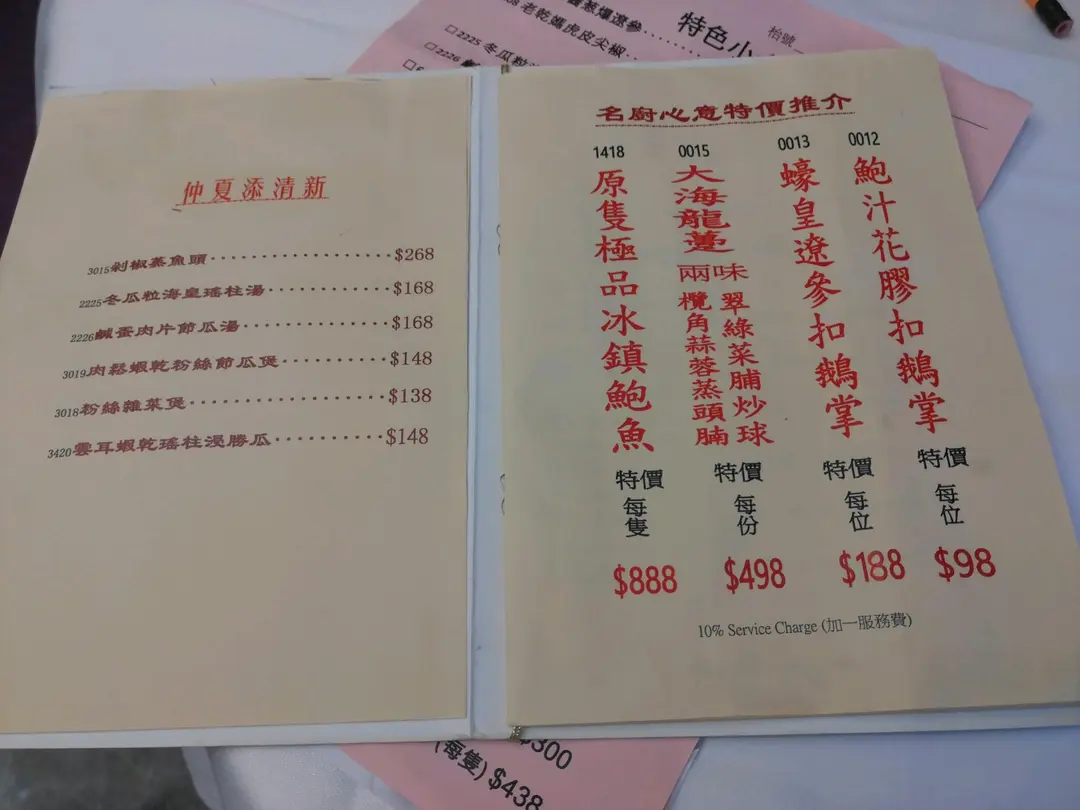 老乾媽虎皮尖椒
特色小
2225冬瓜粒
2226
仲夏添清新
3015剁椒蒸魚頭 $268
2225冬瓜粒海皇瑤柱湯 $168
2226鹹蛋肉片節瓜湯 $168
3019肉鬆蝦乾粉絲節瓜煲 $148
3018粉絲雜菜煲 $138
3420雲耳蝦乾瑤柱浸勝瓜 $148
名廚心意特價推介
0012
鮑汁花膠扣鵝掌
特價
每位
$98
0013
蠔皇遼參扣鵝掌
特價
每位
$188
0015
大海龍躉
兩味
翠綠菜脯炒球
欖角蒜蓉蒸頭腩
特價
每份
$498
1418
原隻極品冰鎮鮑魚
特價
每隻
$888
10% Service Charge (加一服務費)
$300
(每隻) $438